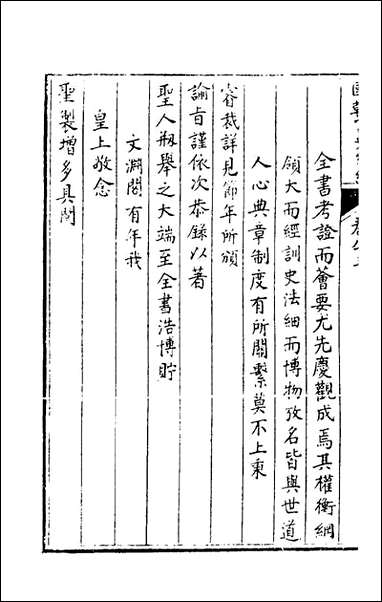 全書考證而薈要尤先慶觀成焉其權衡綱
領大而經訓史法細而博物攷名皆與世道
人心典章制度有所關繫莫不上稟
睿裁詳見節年所頒
諭旨謹依次恭錄以著
聖人刱舉之大端至全書浩博貯
文淵閣有年我
皇上敬念
聖製增多具開